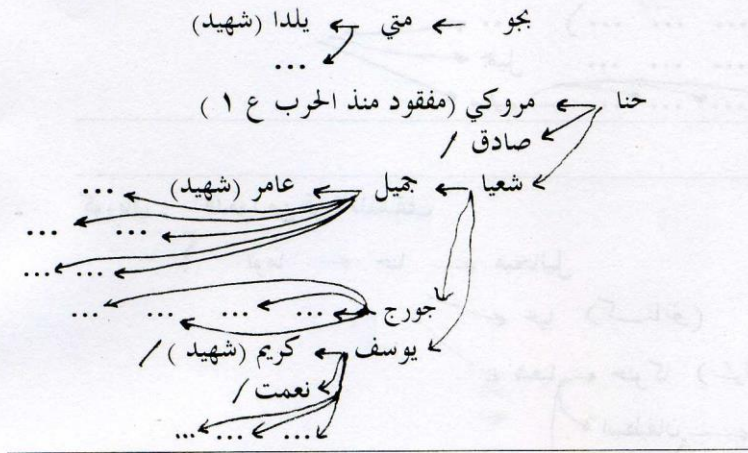 بجو ← متي ← يلدا (شهيد)
...
حنا ← مروكي (مفقود منذ الحرب ع ١ )
صادق /
شعيا ← جميل ← عامر (شهيد) ...
... ...
... ...
جورج ← ... ... ... ...
يوسف ← كريم (شهيد ) /
نعمت /
... ... ...